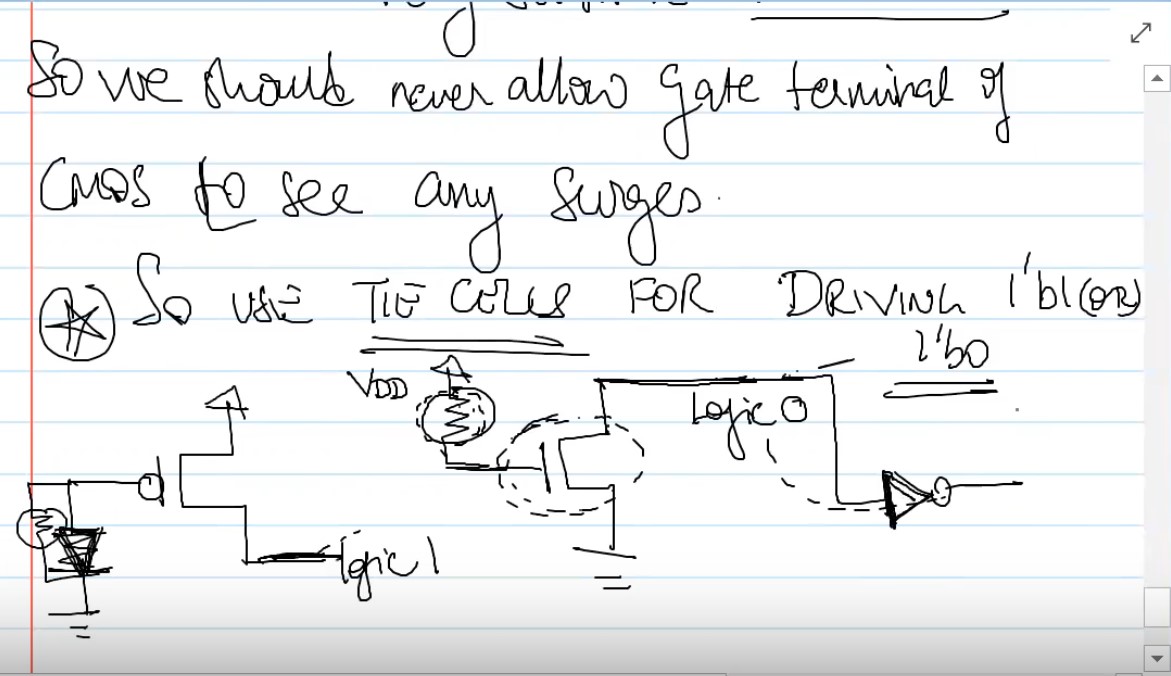 So we should never allow gate terminal of
CMOS to see any surges.
So USE TIE CELLS FOR DRIVING 1'b1 (OR)
1'b0
VDD
Logic 0
logic 1